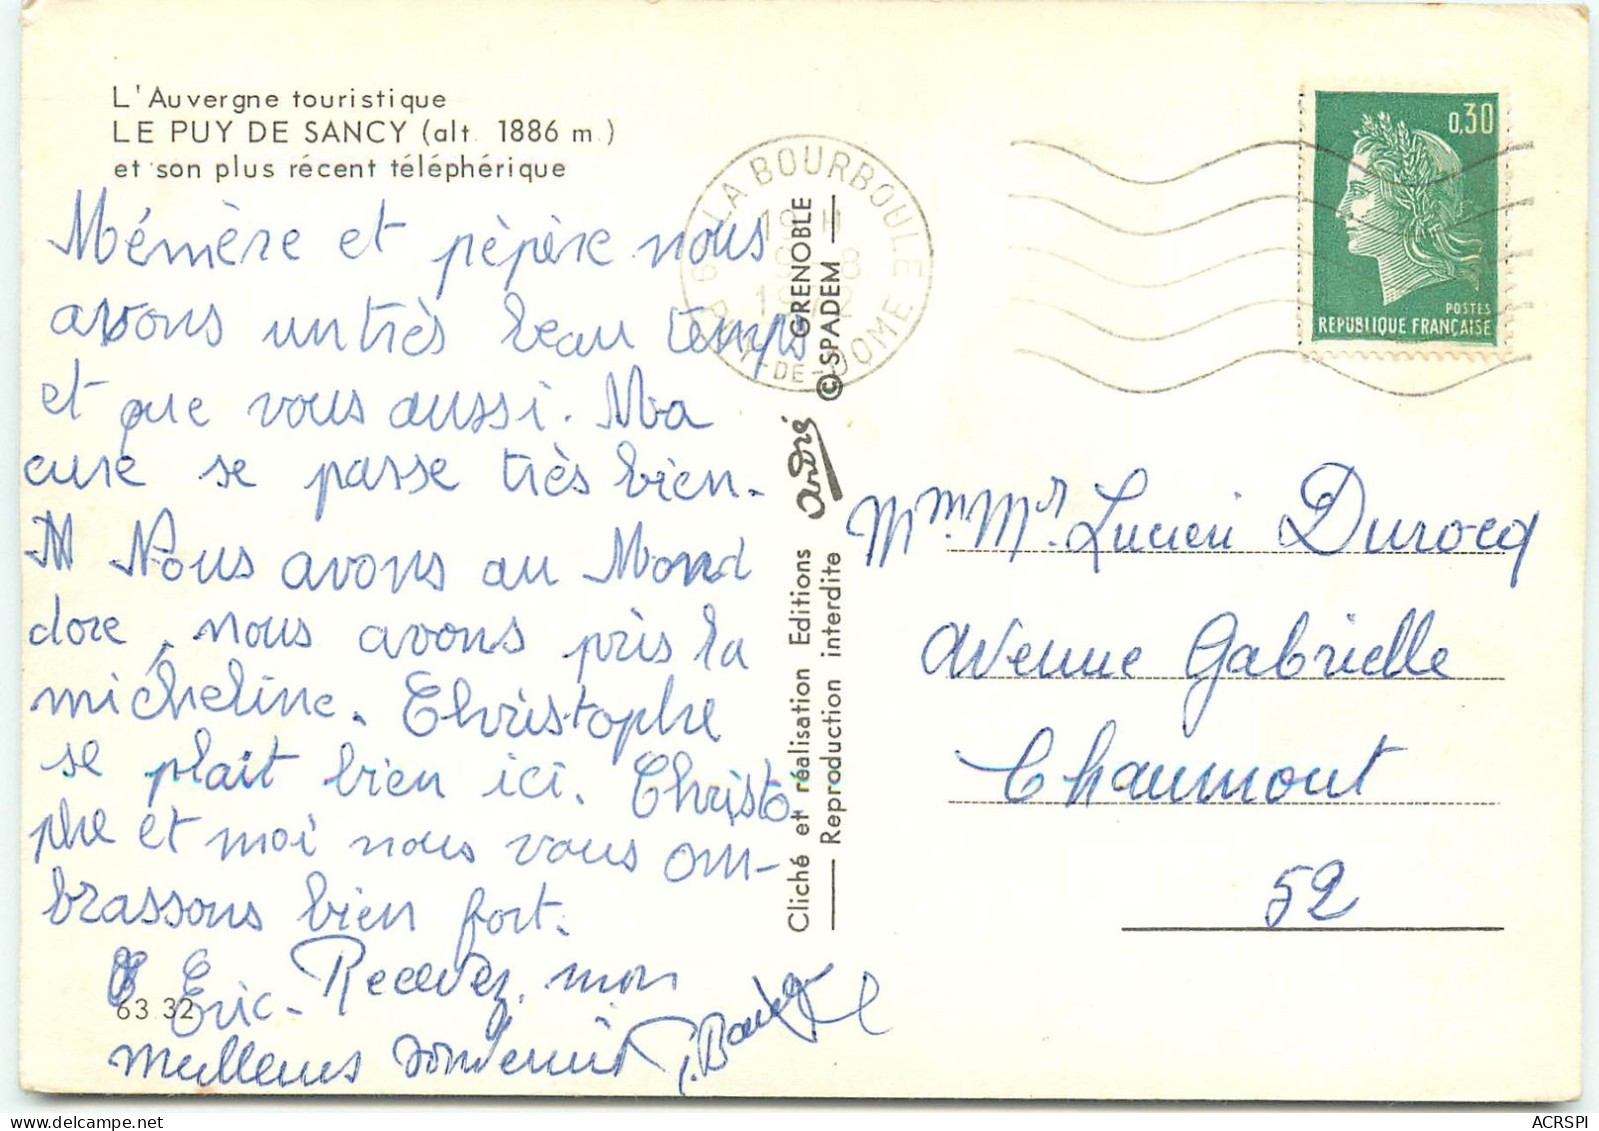 L'Auvergne touristique
LE PUY DE SANCY (alt. 1886 m.)
et son plus récent téléphérique
Mémère et pèpère nous
avons un très beau temps
et que vous aussi. Ma
cure se passe très bien.
Nous avons au Mond
dore, nous avons pris la
micheline. Christophe
se plait bien ici. Christo-
phe et moi nous vous om-
brassons bien fort.
Eric. Recevez mon
meilleurs souvenir
63 32
LA BOURBOULE
18 H
9 - 8
1972
PUY-DE-DOME
Cliché et réalisation Editions André GRENOBLE
Reproduction interdite © SPADEM
0,30
POSTES
REPUBLIQUE FRANÇAISE
Mm. Mr. Lucien Durocq
Avenue Gabrielle
Chaumont
52
ACRSPI